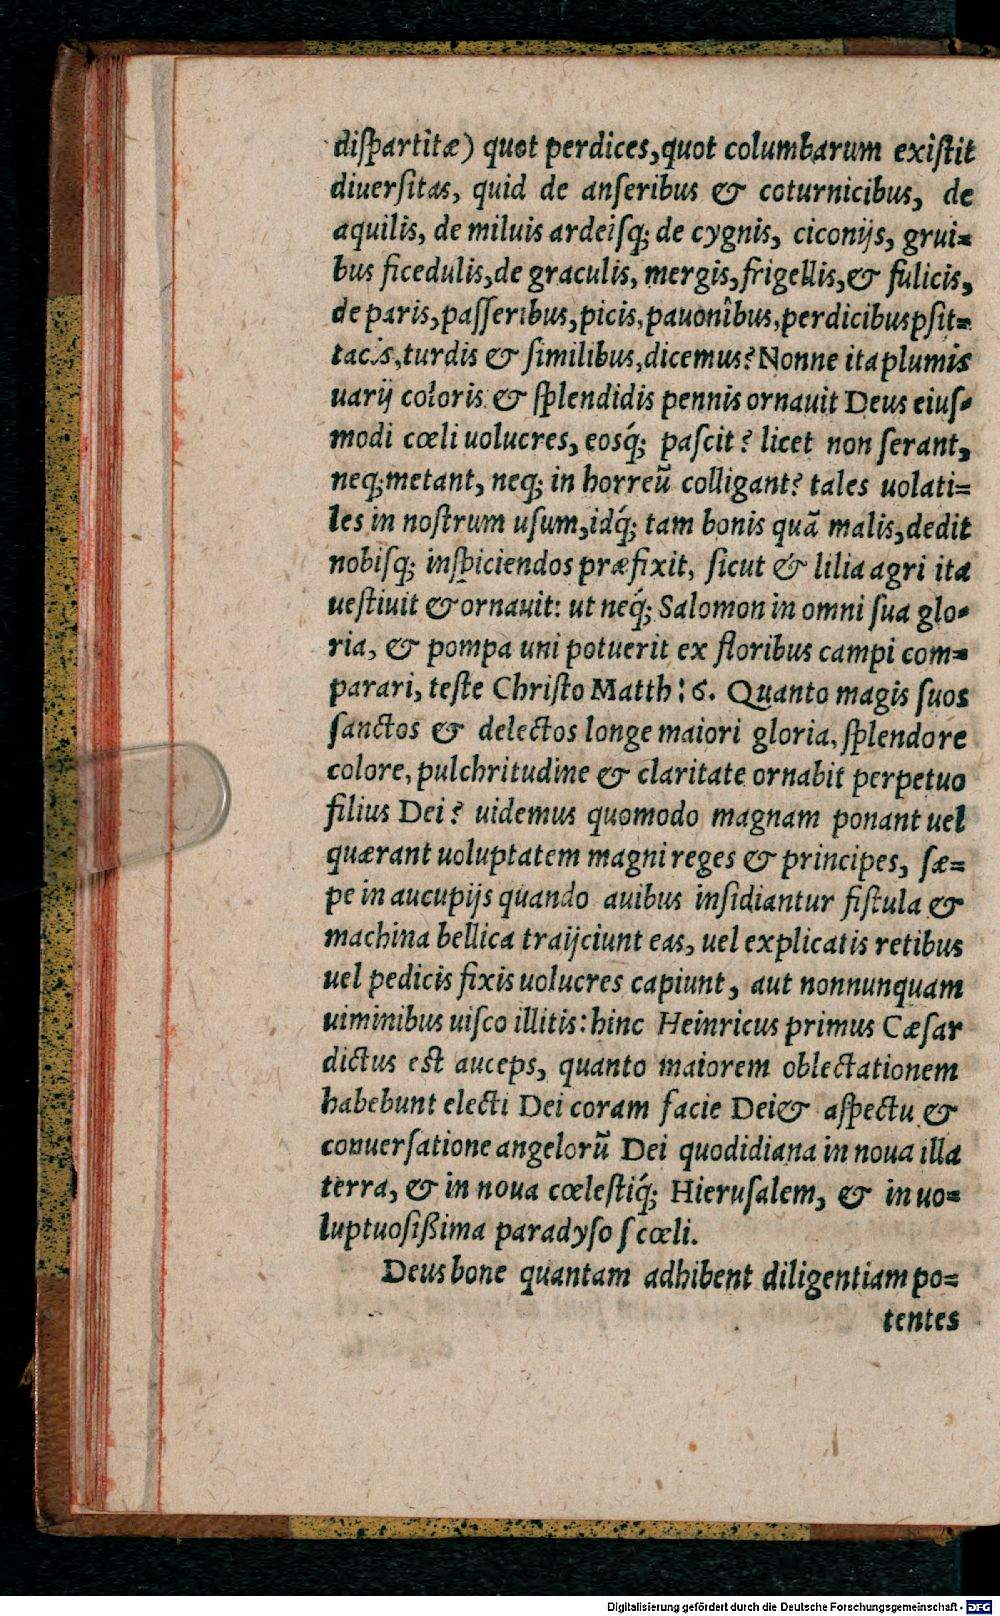 diſpartitæ) quot perdices, quot columbarum exiſtit
diuerſitas, quid de anſeribus & coturnicibus, de
aquilis, de miluis ardeiſq; de cygnis, ciconijs, grui=
bus ficedulis, de graculis, mergis, frigellis, & fulicis,
de paris, paſſeribus, picis, pauonîbus, perdicibus pſit=
tacis, turdis & ſimilibus, dicemus? Nonne ita plumis
uarij coloris & ſplendidis pennis ornauit Deus eiuſ=
modi cœli uolucres, eosq́; paſcit? licet non ſerant,
neq; metant, neq; in horreũ colligant? tales uolati=
les in noſtrum uſum, idq́; tam bonis quã malis, dedit
nobiſq; inſpiciendos præfixit, ſicut & lilia agri ita
ueſtiuit & ornauit: ut neq́; Salomon in omni ſua glo=
ria, & pompa uni potuerit ex floribus campi com=
parari, teſte Chriſto Matth: 6. Quanto magis ſuos
ſanctos & delectos longe maiori gloria, ſplendore
colore, pulchritudine & claritate ornabit perpetuo
filius Dei? uidemus quomodo magnam ponant uel
quærant uoluptatem magni reges & principes, ſæ=
pe in aucupijs quando auibus inſidiantur fiſtula &
machina bellica traijciunt eas, uel explicatis retibus
uel pedicis fixis uolucres capiunt, aut nonnunquam
uiminibus uiſco illitis: hinc Heinricus primus Cæſar
dictus eſt auceps, quanto maiorem oblectationem
habebunt electi Dei coram facie Dei & aſpectu &
conuerſatione angelorũ Dei quodidiana in noua illa
terra, & in noua cœleſtiq́; Hieruſalem, & in uo=
luptuoſißima paradyſo ſ cœli.
Deus bone quantam adhibent diligentiam po=
tentes
Digitalisierung gefördert durch die Deutsche Forschungsgemeinschaft - DFG